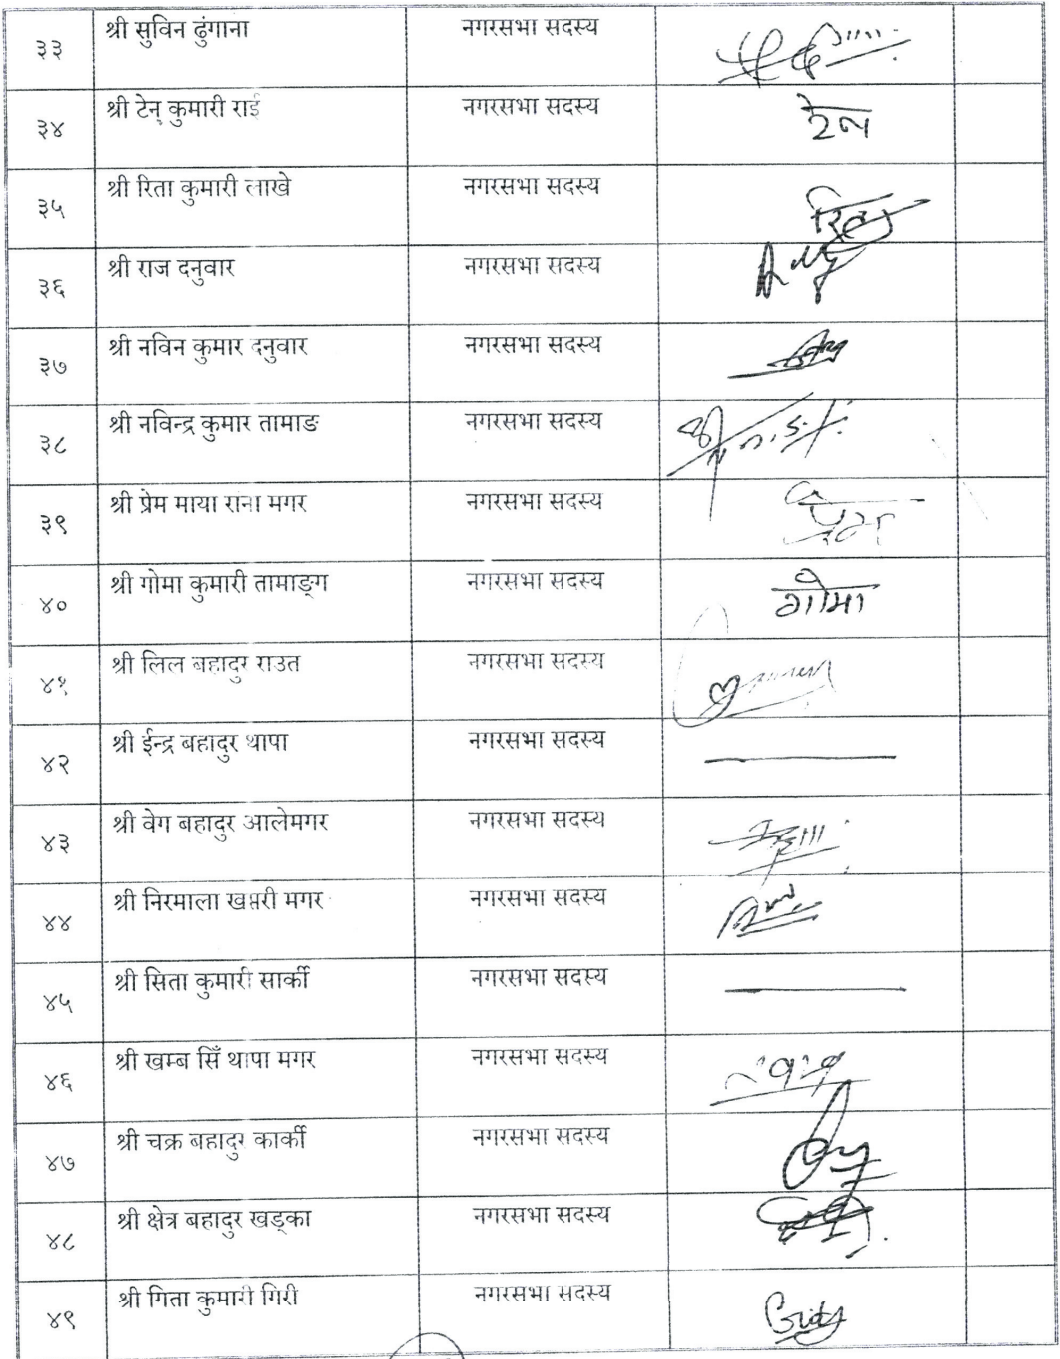 ३३ श्री सुविन ढुंगाना नगरसभा सदस्य
३४ श्री टेन् कुमारी राई नगरसभा सदस्य टेन
३५ श्री रिता कुमारी लाखे नगरसभा सदस्य रिता
३६ श्री राज दनुवार नगरसभा सदस्य
३७ श्री नविन कुमार दनुवार नगरसभा सदस्य
३८ श्री नविन्द्र कुमार तामाङ नगरसभा सदस्य
३९ श्री प्रेम माया राना मगर नगरसभा सदस्य
४० श्री गोमा कुमारी तामाङ्ग नगरसभा सदस्य गोमा
४१ श्री लिल बहादुर राउत नगरसभा सदस्य
४२ श्री ईन्द्र बहादुर थापा नगरसभा सदस्य
४३ श्री वेग बहादुर आलेमगर नगरसभा सदस्य
४४ श्री निरमाला खप्तरी मगर नगरसभा सदस्य
४५ श्री सिता कुमारी सार्की नगरसभा सदस्य
४६ श्री खम्ब सिँ थापा मगर नगरसभा सदस्य
४७ श्री चक्र बहादुर कार्की नगरसभा सदस्य
४८ श्री क्षेत्र बहादुर खड्का नगरसभा सदस्य
४९ श्री गिता कुमारी गिरी नगरसभा सदस्य